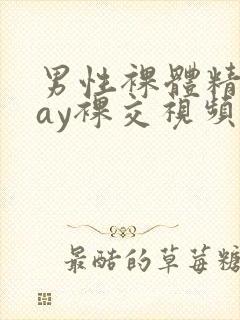 男性裸體精
ay裸交視頻
最酷的草莓糖